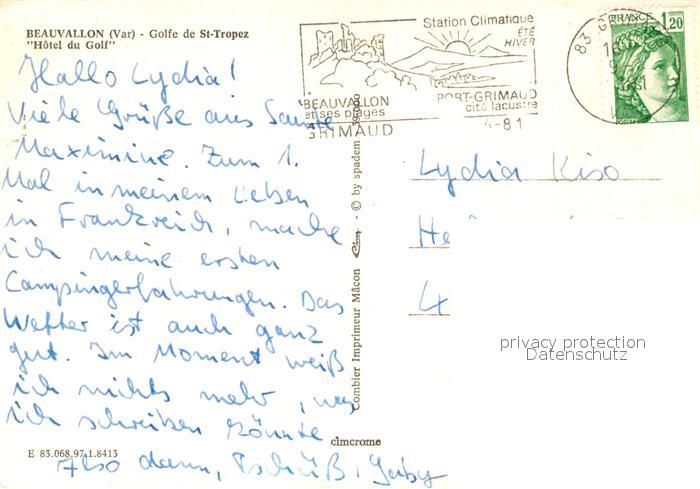 BEAUVALLON (Var) - Golfe de St-Tropez
"Hôtel du Golf"
Station Climatique
ÉTÉ
HIVER
BEAUVALLON
et ses plages
PORT-GRIMAUD
cité lacustre
GRIMAUD
4-81
83
FRANCE
1,20
Hallo Lydia!
Viele Grüße aus Sainte
Maximine. Zum 1.
Mal in meinem Leben
in Frankreich, mache
ich meine ersten
Campingerfahrungen. Das
Wetter ist auch ganz
gut. Im Moment weiß
ich nichts mehr, was
ich schreiben könnte
Also dann, Tschüß, Gaby
Lydia Kiso
He
4
privacy protection
Datenschutz
Combier Imprimeur Mâcon Cim - © by spadem
cimcrome
E 83.068.97.1.8413